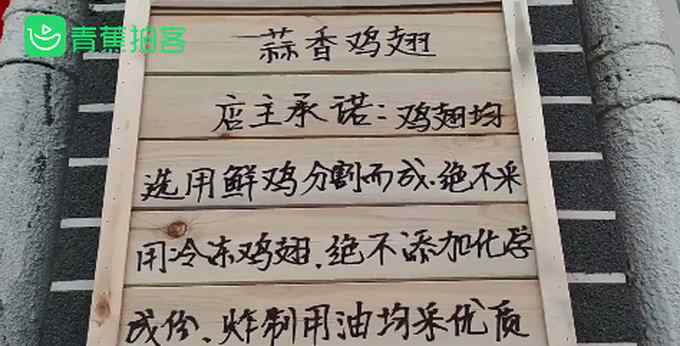 青蕉拍客
蒜香鸡翅
店主承诺:鸡翅均
选用鲜鸡分割而成.绝不采
用冷冻鸡翅.绝不添加化学
成份、炸制用油均采优质